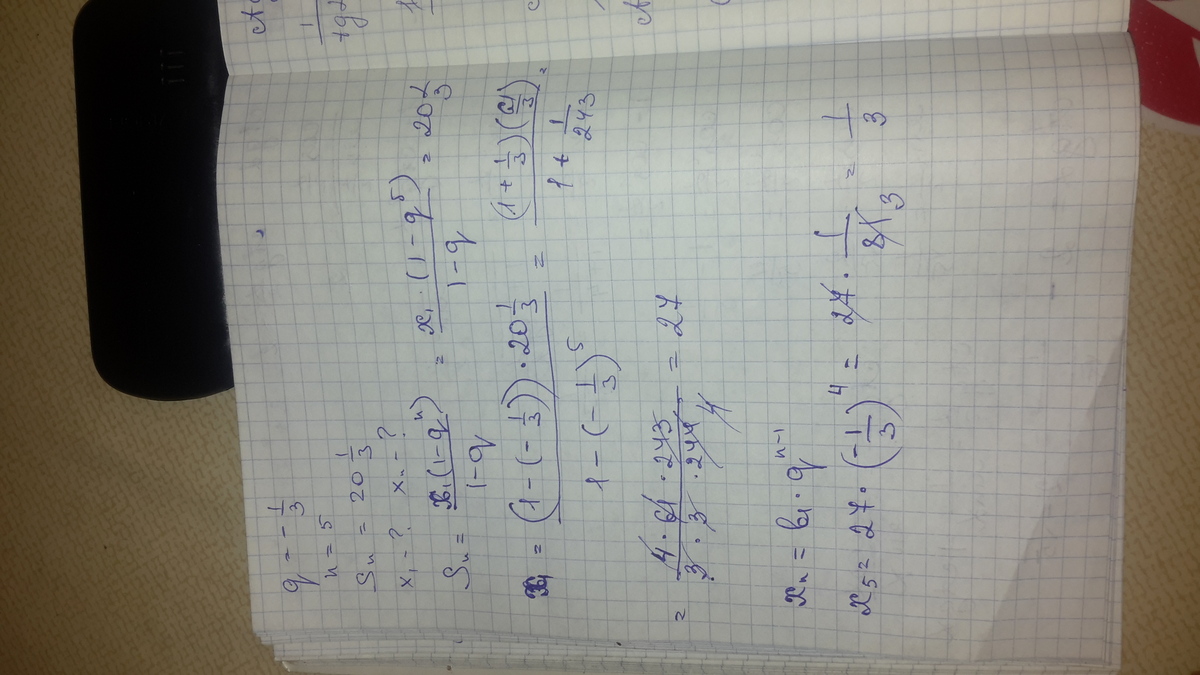 q = -1/3
n = 5
Sn = 20 1/3
x₁ - ? xn - ?
Sn = x₁(1-qⁿ)/1-q = x₁·(1-q⁵)/1-q = 20 1/3
x₁ = (1-(-1/3))·20 1/3 / 1-(-1/3)⁵ = (1+1/3)(61/3) / 1+1/243 =
= 4·61·243 / 3·3·244 = 27
4
xn = b₁·qⁿ⁻¹
x₅ = 27·(-1/3)⁴ = 27·1/81 = 1/3
3